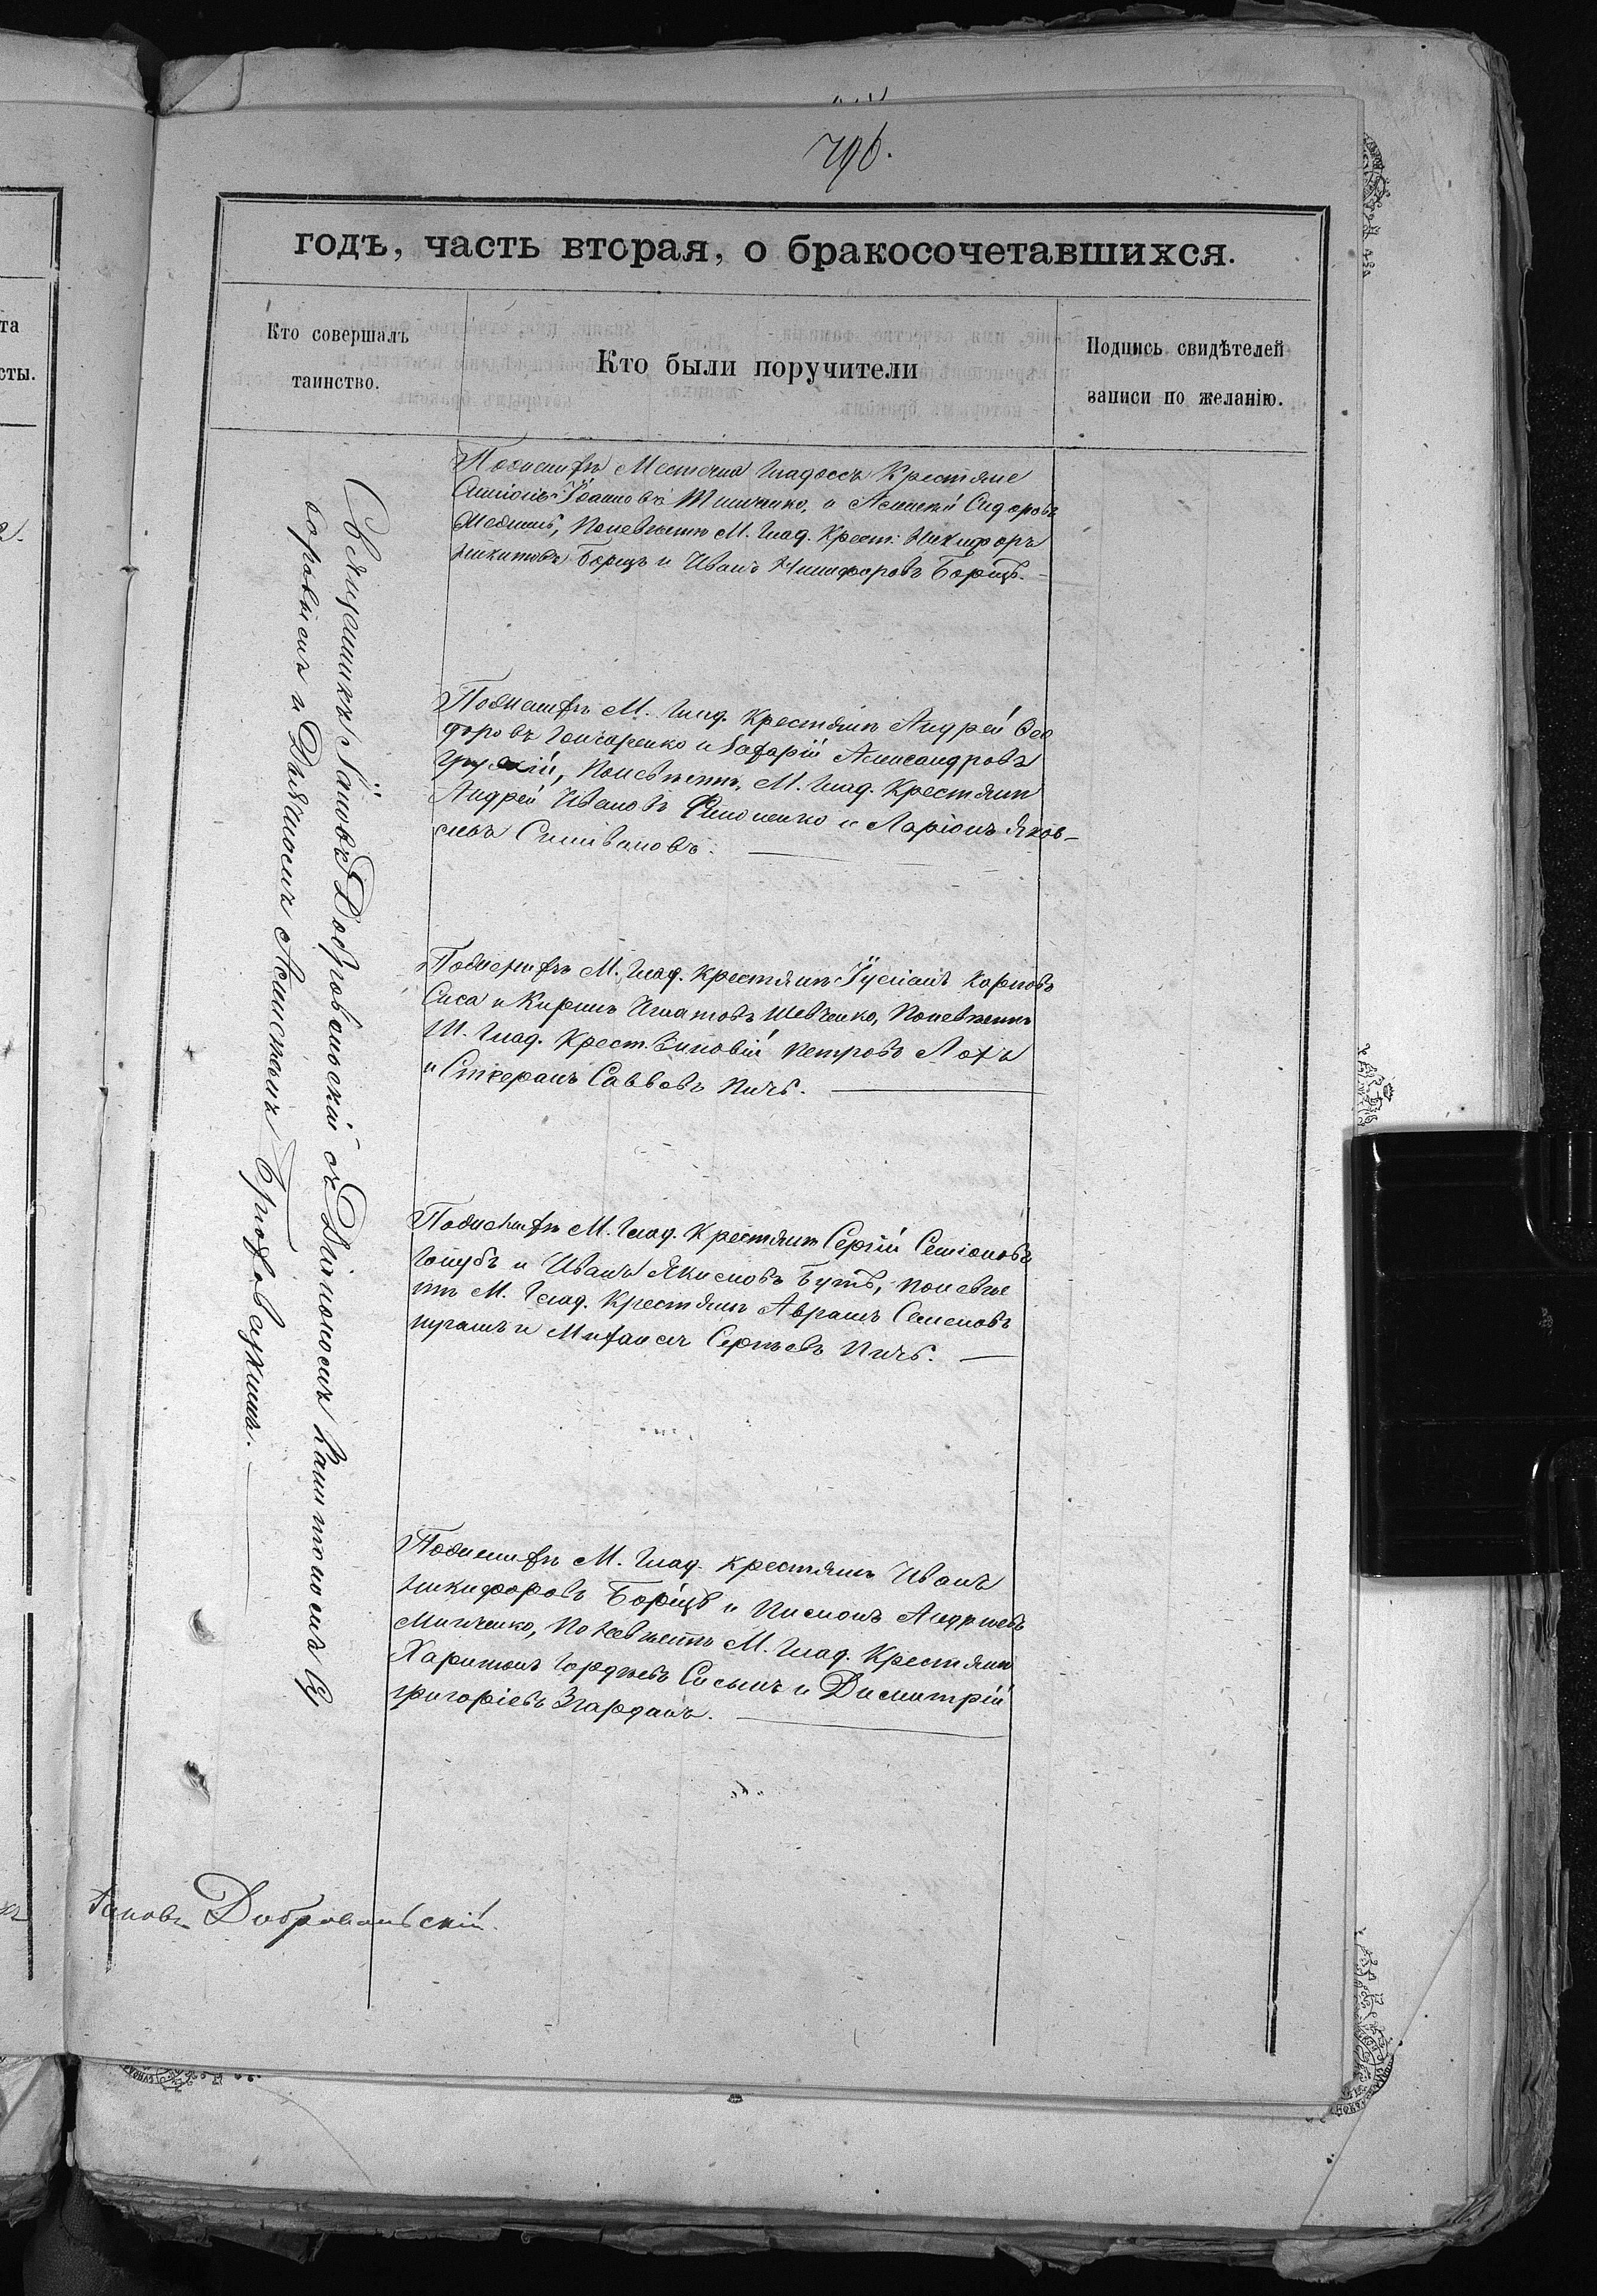 796.
годъ, часть вторая, о бракосочетавшихся.
Кто совершалъ
таинство.
Кто были поручители
Подпись свидѣтелей
записи по желанію.
та
сты.
Священникъ Іаковъ Добровольскій съ Діакономъ Капитономъ
и Дьячкомъ
По женихѣ Местечка Гладоссъ Крестяне
Симіонъ Іоановъ и Алексѣй Сидоровъ
По невѣстѣ М. Глад. Крест: Никифоръ
Никитовъ Борщъ и Иванъ Никифоровъ Борщъ.
По женихѣ М. Глад. Крестяни Андрей Ѳео
доровъ Гончаренко и Захарій Александровъ
По невѣсте, М. Глад. Крестяни
Андрей Ивановъ и Ларіонъ Яков-
левъ Силивановъ.
По женихѣ М. Глад. Крестяни Карповъ
Сиса и Кирилъ Игнатовъ Шевченко, По невѣсте
М. Глад. Крест. Зиновій Петровъ Лохъ
и Стефанъ Саввовъ Пичь.
По женихѣ М. Глад. Крестяни Сергій Симіоновъ
Голубъ и Иванъ Якимовъ Бутъ, По невѣс
тѣ М. Глад. Крестяни Аврамъ Семеновъ
и Михаилъ Сергѣевъ Пичь.
По женихѣ М. Глад. Крестяни Иванъ
Никифоровъ Борщъ и Пимонъ Андреевъ
Минченко, По невѣсте М. Глад. Крестяни
Харитонъ Гордѣевъ Сисынъ и Димитрій
Григоріевъ Згарданъ.
Іаковъ Добровольскій.